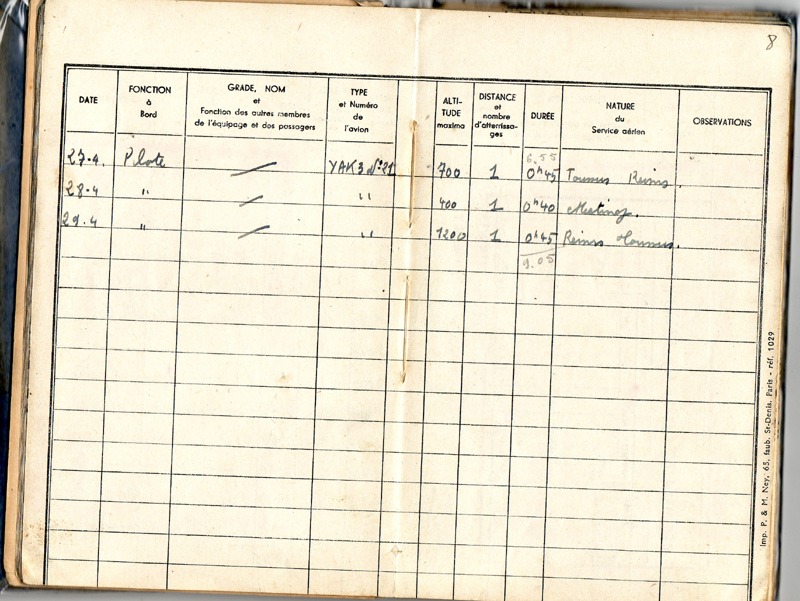 8
DATE
FONCTION
à
Bord
GRADE, NOM
et
Fonction des autres membres
de l'équipage et des passagers
TYPE
et Numéro
de
l'avion
ALTI-
TUDE
maxima
DISTANCE
et
nombre
d'atterrissa-
ges
DURÉE
NATURE
du
Service aérien
OBSERVATIONS
6.55
27.4. Pilote YAK3 N°21 700 1 0h45 Reims.
28.4 " " 400 1 0h40 Meeting.
29.4 " " 1200 1 0h45 Reims
9.05
Imp. P. & M. Ney, 65, faub. St-Denis, Paris - réf. 1029